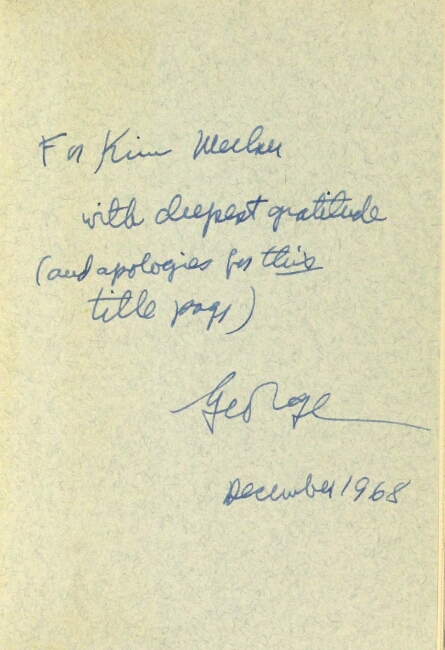 For Kim
with deepest gratitude
(and apologies for this
title page)
George
December 1968